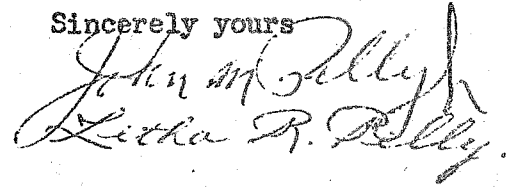 Sincerely yours
John M Pelly Jr
Litha R. Pelly.